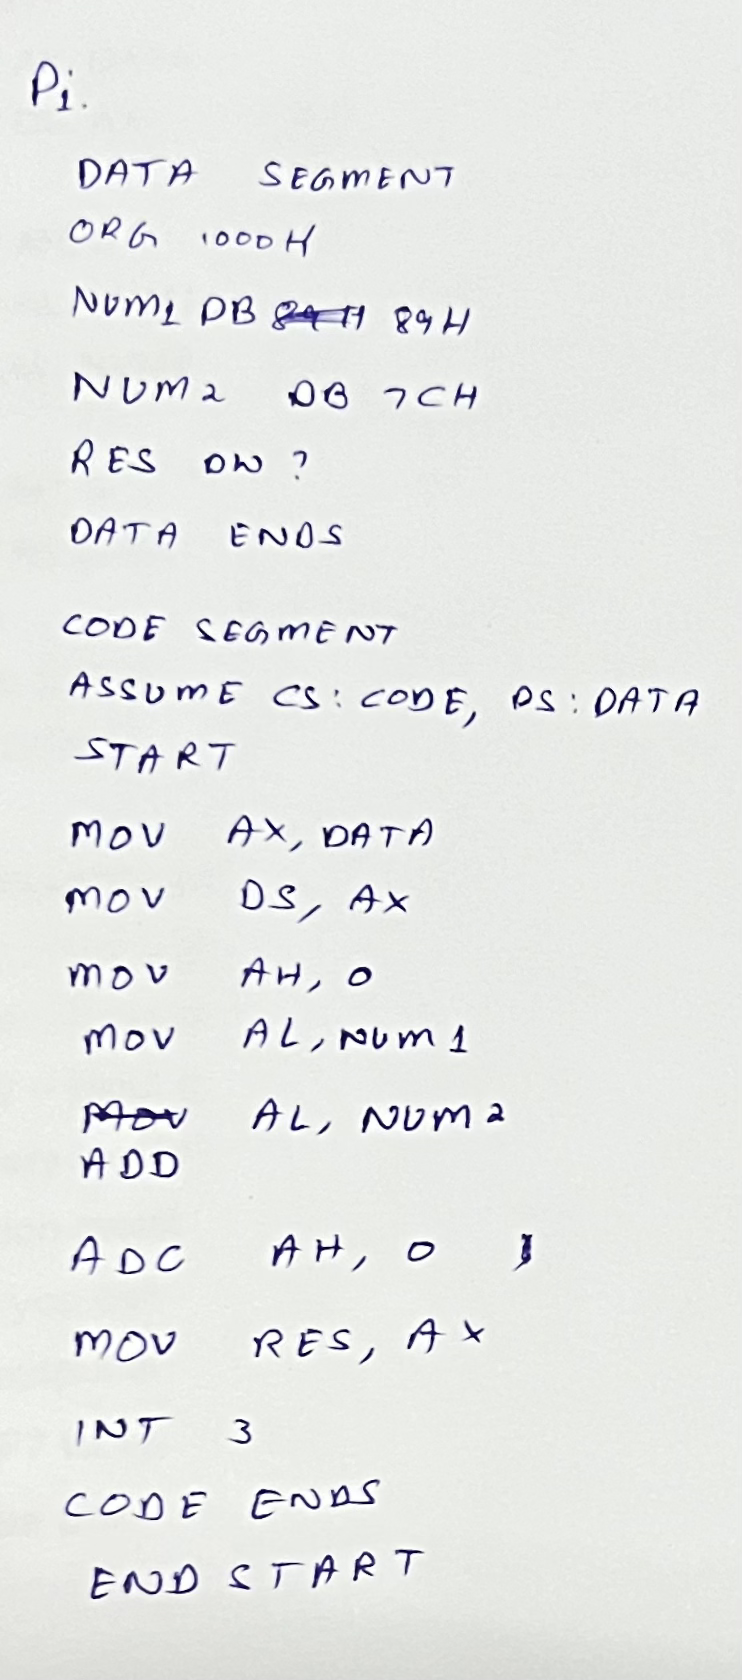 P1.
DATA SEGMENT
ORG 1000H
NUM1 DB 89H
NUM2 DB 7CH
RES DW ?
DATA ENDS
CODE SEGMENT
ASSUME CS: CODE, DS: DATA
START
MOV AX, DATA
MOV DS, AX
MOV AH, 0
MOV AL, NUM1
AL, NUM2
ADD
ADC AH, 0
MOV RES, AX
INT 3
CODE ENDS
END START